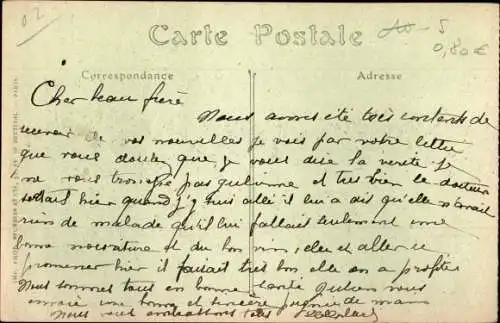 02
Carte Postale
5
0,80€
Correspondance
Adresse
Cher beau frère
Nous avons été très contents de
recevoir de vos nouvelles je vois par votre lettre
que vous doutez que je vous dise la verité je
ne vous trompe pas et très bien le docteur
sortait hier quand j'y suis allé il lui a dit qu'elle n'avait
rien de malade qu'il lui fallait seulement une
bonne nourriture et du bon vin, elle et aller se
promener hier il faisait très bon elle en a profité
Nous sommes tous en bonne santé
envoie une bonne et sincère poignée de main
Nous vous embrassons tous